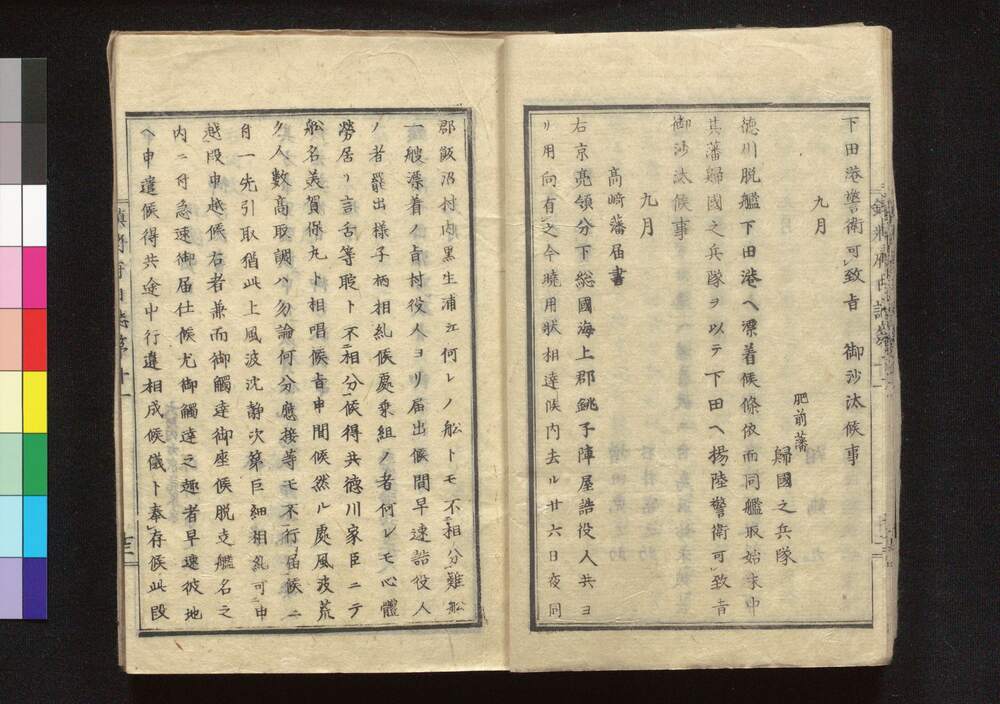 下田港警衛可致旨 御沙汰候事
九月
肥前藩
歸國之兵隊
德川脱艦下田港ヘ漂着候條依而同艦取始末中
其藩歸國之兵隊ヲ以テ下田ヘ揚陸警衛可致旨
御沙汰候事
九月
高崎藩届書
右京亮領分下総國海上郡銚子陣屋詰役人共ヨ
リ用向有之今曉用状相達候内去ル廿六日夜同
郡飯沼村内黒生浦江何レノ船トモ不相分難船
一艘漂着ノ旨村役人ヨリ届出候間早速詰役人
ノ者罷出様子柄相糺候處乗組ノ者何レモ心體
勞居リ言舌等聢ト不相分候得共德川家臣ニテ
舩名美賀保丸ト相唱候旨申聞候然ル處風波荒
ク人數高取調ハ勿論何分應接等モ不行届候ニ
付一先引取猶此上風波沈靜次第巨細相糺可申
越段申越候右者兼而御觸達御座候脱走艦名之
内ニ付急速御届仕候尤御觸達之趣者早速彼地
ヘ申遣候得共途中行違相成候儀ト奉存候此段